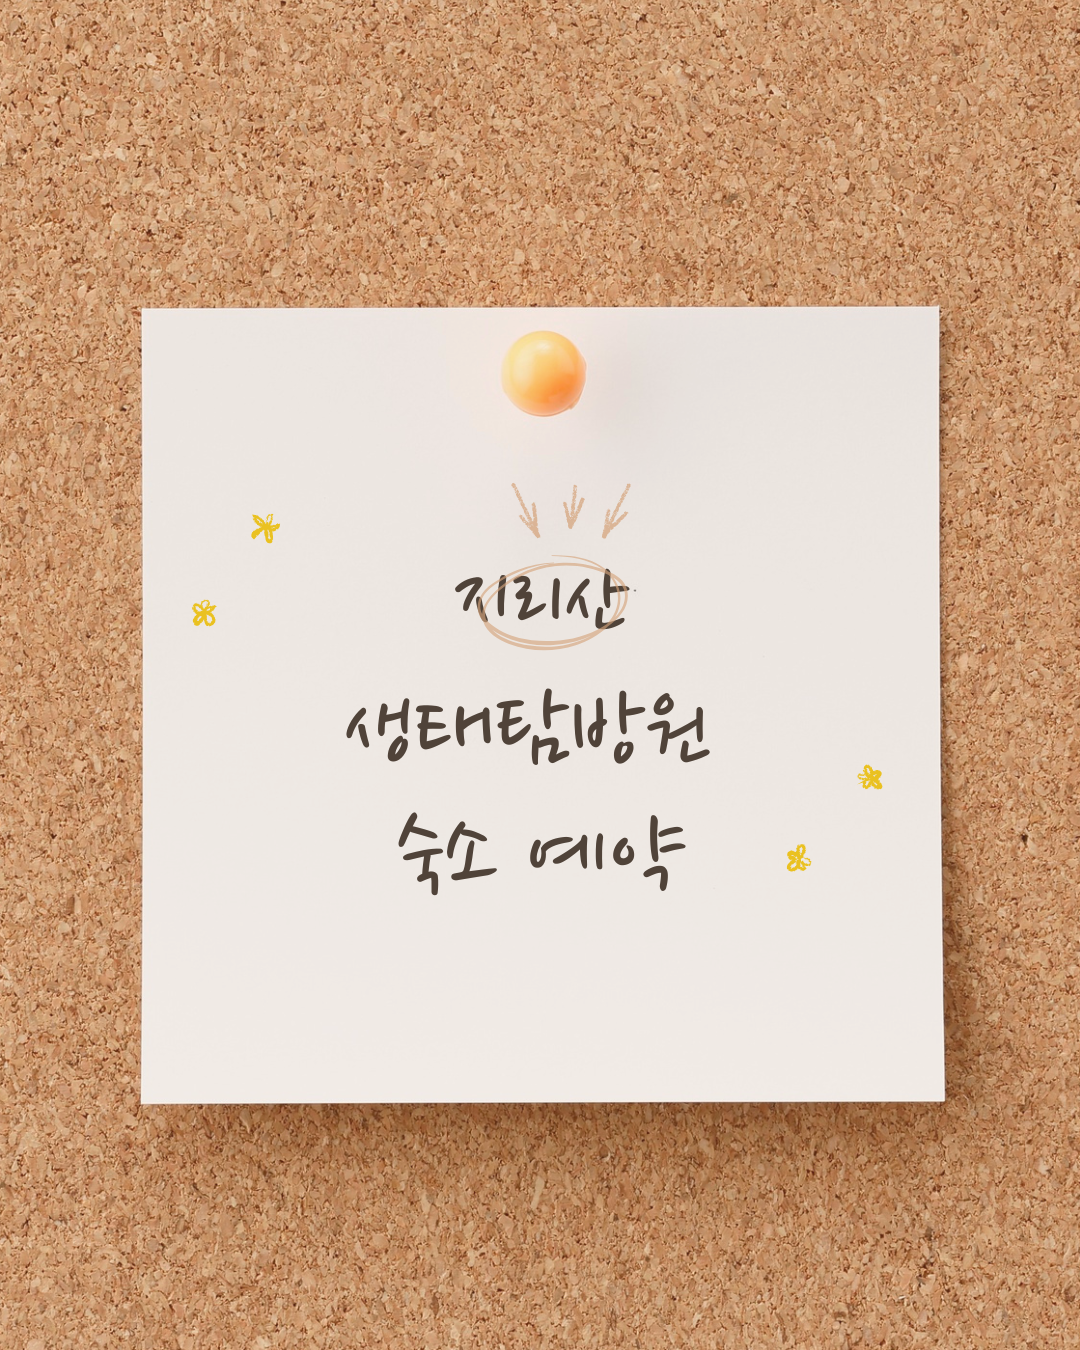 지리산
생태탐방원
숙소 예약